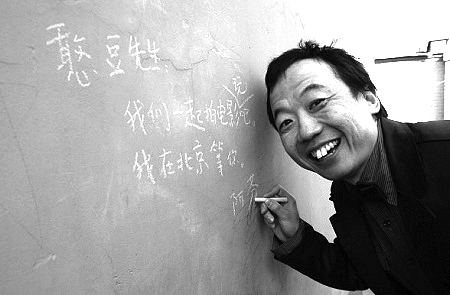 憨豆先生,
我们一起拍电影吧,
我在北京等你。
阿